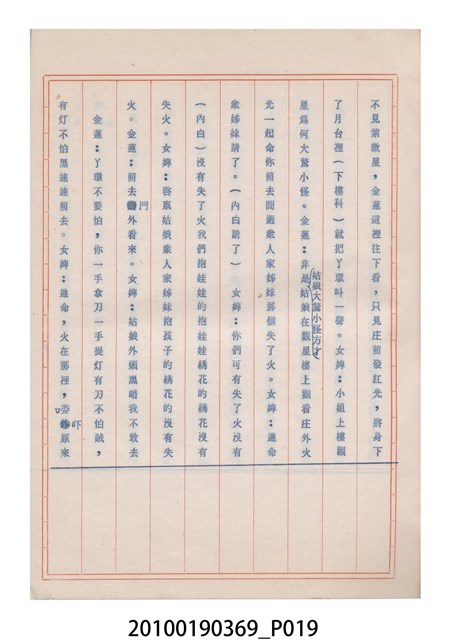 不見紫微星，金蓮這裡往下看，只見庄前發紅光，將身下
了月台裡（下樓科）就把丫環叫一聲。女婢：小姐上樓觀
星爲何大驚小怪。金蓮：非是姑娘大驚小怪方才姑娘在觀星樓上觀看庄外火
光一起命你前去問過衆人家姊妹那個失了火。女婢：遵命
衆姊妹請了。（內白請了）　女婢：你們可有失了火沒有
（內白）沒有失了火我們抱娃娃的抱娃娃綉花的綉花沒有
失火。女婢：啓禀姑娘衆人家姊妹抱孩子的綉花的沒有失
火。金蓮：前去門外看來。女婢：姑娘外頭黑暗我不敢去
金蓮：丫環不要怕，你一手拿刀一手提灯有刀不怕賊，
有灯不怕黑遠遠前去。女婢：遵命，火在那裡，吓原來
20100190369_P019